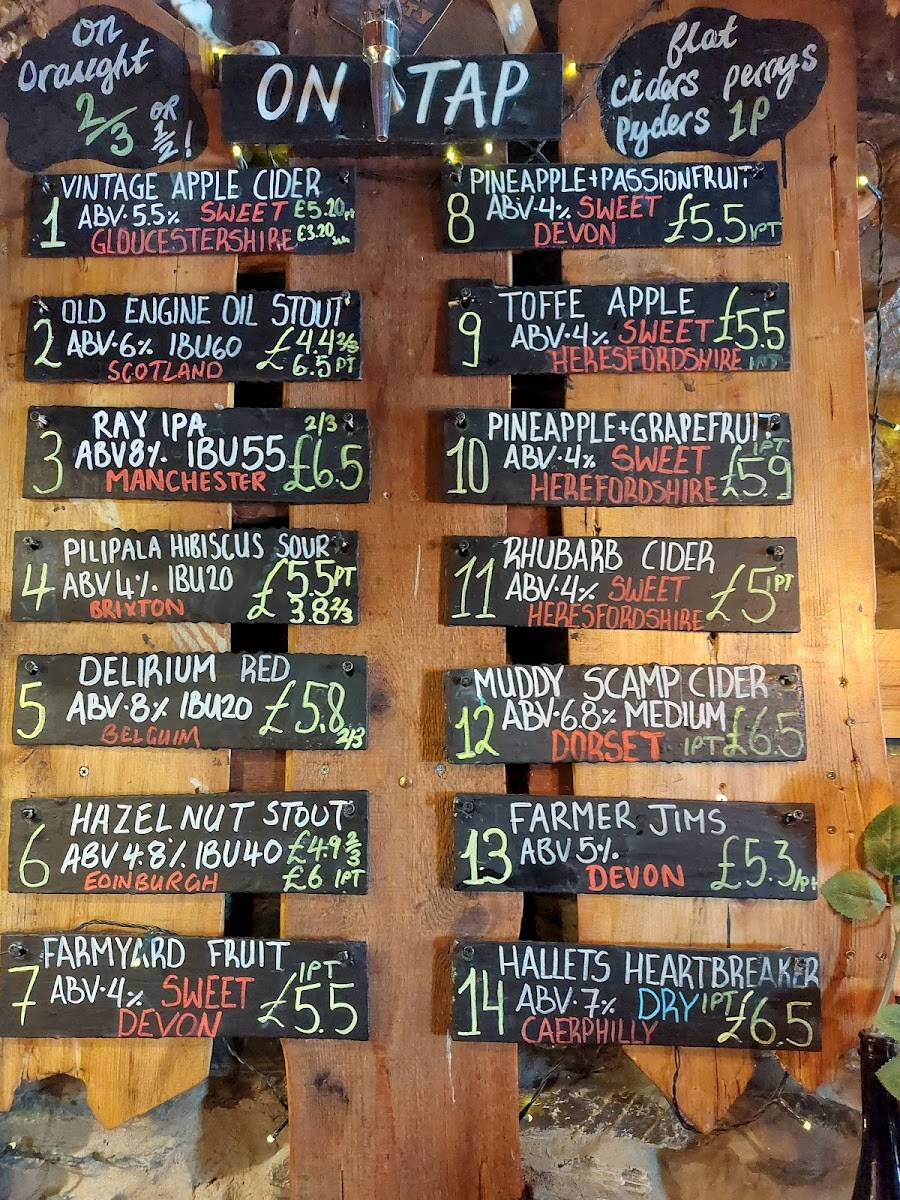 on
Draught
2/3 OR 1/2!
ON TAP
flat
Ciders perrys
pyders 1P
1 VINTAGE APPLE CIDER
ABV·5.5% SWEET £5.20pt
GLOUCESTERSHIRE £3.20
2 OLD ENGINE OIL STOUT
ABV·6% IBU60 £4.4 2/3
SCOTLAND £6.5 PT
3 RAY IPA 2/3
ABV8% IBU55 £6.5
MANCHESTER
4 PILIPALA HIBISCUS SOUR
ABV4% IBU20 £5.5PT
BRIXTON 3.8 2/3
5 DELIRIUM RED
ABV·8% IBU20 £5.8 2/3
BELGUIM
6 HAZELNUT STOUT
ABV4.8% IBU40 £4.9 2/3
EDINBURGH £6 1PT
7 FARMYARD FRUIT 1PT
ABV·4% SWEET £5.5
DEVON
8 PINEAPPLE+PASSIONFRUIT
ABV·4% SWEET
DEVON £5.5 1PT
9 TOFFE APPLE £5.5
ABV·4% SWEET
HERESFORDSHIRE 1PT
10 PINEAPPLE+GRAPEFRUIT
ABV·4% SWEET 1PT
HEREFORDSHIRE £5.9
11 RHUBARB CIDER
ABV·4% SWEET £5 1PT
HERESFORDSHIRE
12 MUDDY SCAMP CIDER
ABV·6.8% MEDIUM
DORSET 1PT £6.5
13 FARMER JIMS
ABV 5%
DEVON £5.3/pt
14 HALLETS HEARTBREAKER
ABV·7% DRY 1PT £6.5
CAERPHILLY